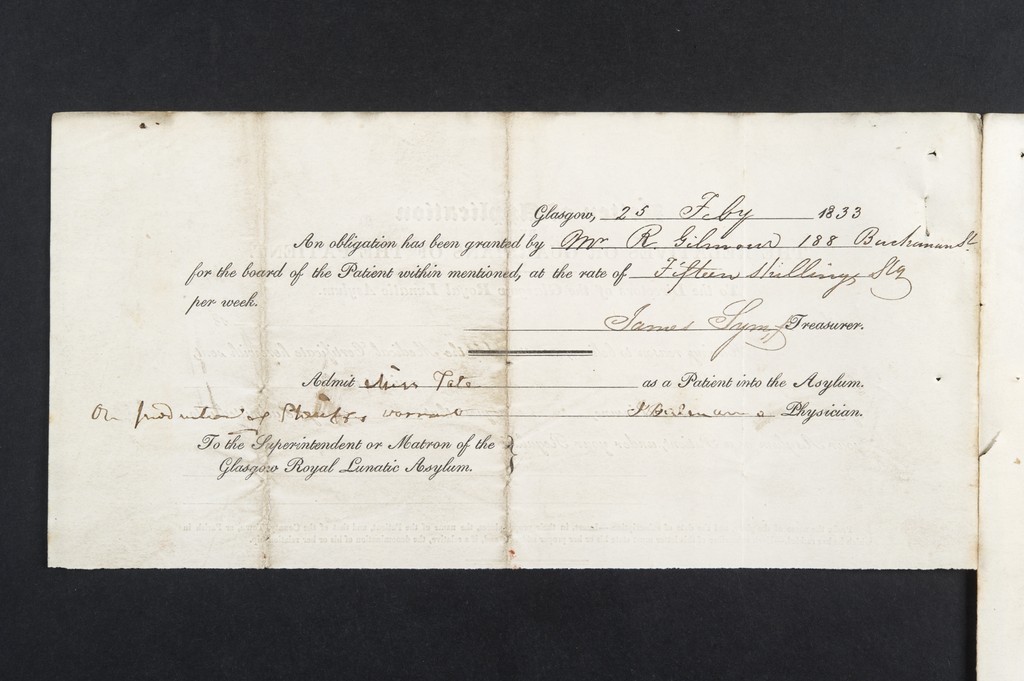 Glasgow, 25 Feby 1833
An obligation has been granted by Mr R. Gilmour 188 Buchanan St
for the board of the Patient within mentioned, at the rate of Fifteen Shillings Stg
per week.
James Syme Treasurer.
Admit Miss Tate as a Patient into the Asylum.
On production of Sheriffs warrant Physician.
To the Superintendent or Matron of the
Glasgow Royal Lunatic Asylum.